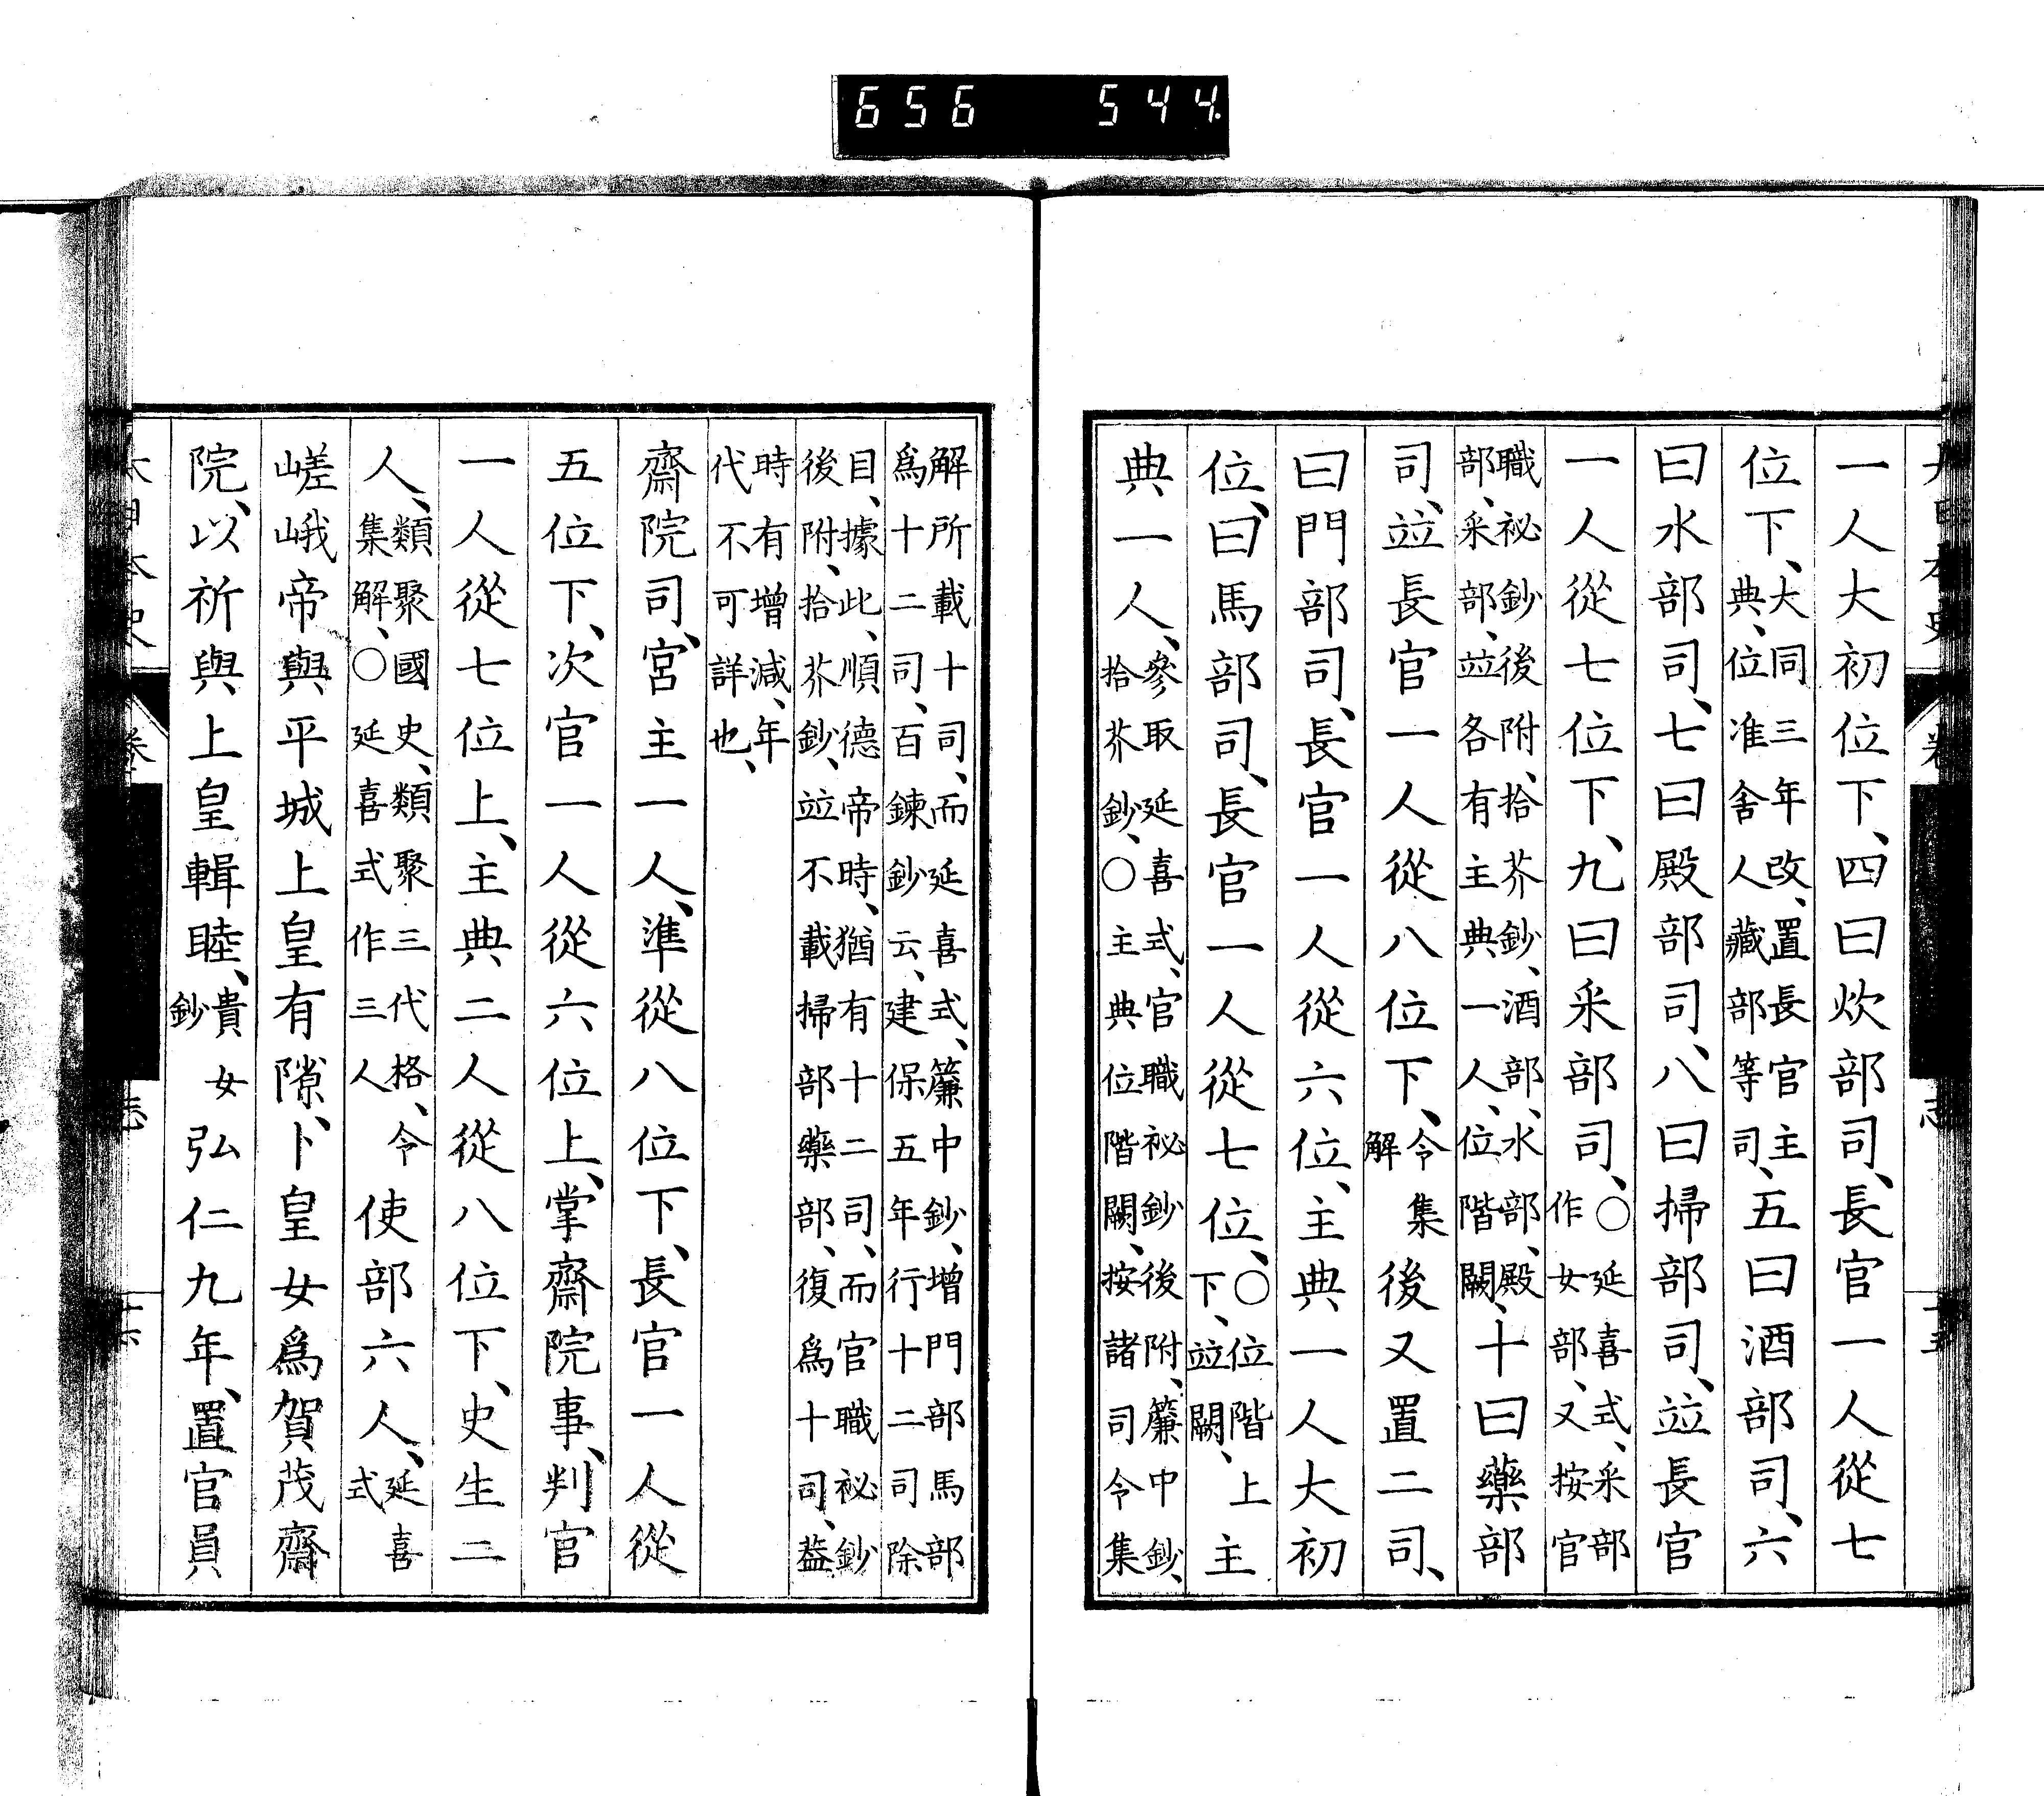 656 544
一人大初位下、四曰炊部司、長官一人從七
位下、大同三年改、置長官主典、位准舍人藏部等司、五曰酒部司、六
曰水部司、七曰殿部司、八曰掃部司、竝長官
一人從七位下、九曰采部司、○延喜式、采部作女部、又按官
職祕鈔後附、拾芥鈔、酒部、水部、殿部、采部、竝各有主典一人、位階闕、十曰藥部
司、竝長官一人從八位下、令集解後又置二司、
曰門部司、長官一人從六位、主典一人大初
位、曰馬部司、長官一人從七位、○位階上下、竝闕、主
典一人、參取延喜式、官職祕鈔後附、簾中鈔、拾芥鈔、○主典位階闕、按諸司令集
解所載十司、而延喜式、簾中鈔、增門部馬部爲十二司、百鍊鈔云、建保五年行十二司除
目、據此、順德帝時、猶有十二司、而官職祕鈔後附、拾芥鈔、竝不載掃部藥部、復爲十司、蓋
時有增減、年代不可詳也、
齋院司、宮主一人、準從八位下、長官一人從
五位下、次官一人從六位上、掌齋院事、判官
一人從七位上、主典二人從八位下、史生二
人、類聚國史、類聚三代格、令集解、○延喜式作三人使部六人、延喜式
嵯峨帝與平城上皇有隙、卜皇女爲賀茂齋
院、以祈與上皇輯睦、貴女鈔弘仁九年、置官員
大日本史 卷 志